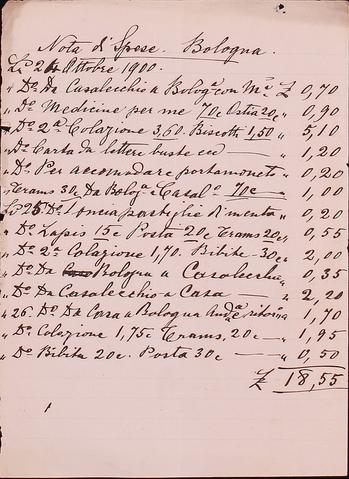 Nota d'Spese. Bologna.
Li 24 Ottobre 1900.
" Do. Da Casalecchio a Bologa con Ma £ 0,70
" Do. Medicine per me 70c Ostia 20c " 0,90
" Do. 2a Colazione 3,60. Biscotti 1,50 " 5,10
" Do. Carta da lettere buste ecc — " 1,20
" Do. Per accomodare portamoneto " 0,20
" Trams 30c Da Bologa a Casalo 70c — " 1,00
Li 25 Do. 1 oncia pastiglie di menta " 0,20
" Do. Lapis 15c Posta 20c Trams 20c " 0,55
" Do. 2a Colazione 1,70. Bibite 30c " 2,00
" Do. Da Bologna a Casalecchio " 0,35
" Do. Da Casalecchio a Casa — " 2,20
" 26. Do. Da Casa a Bologna And.a e ritorno " 1,70
" Do. Colezione 1,75c Trams, 20c — " 1,95
" Do. Bibita 20c. Posta 30c — " 0,50
£ 18,55